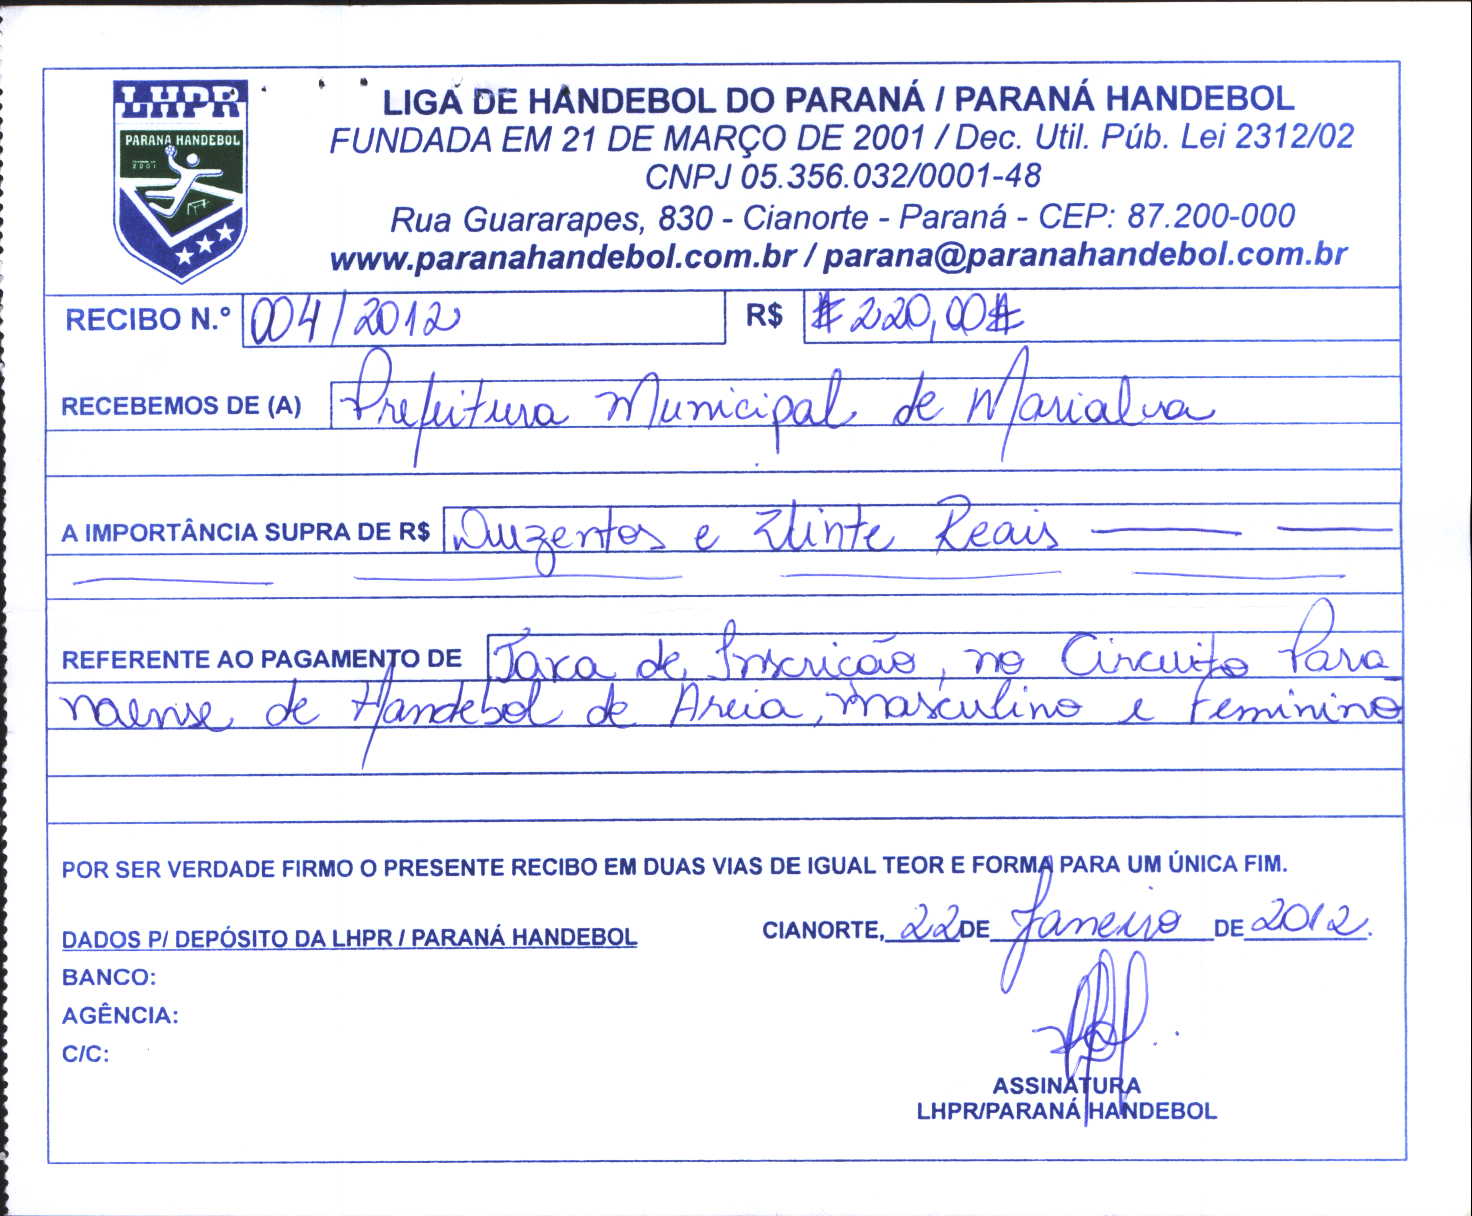 LHPR
PARANÁ HANDEBOL
2001
LIGA DE HANDEBOL DO PARANÁ / PARANÁ HANDEBOL
FUNDADA EM 21 DE MARÇO DE 2001 / Dec. Util. Púb. Lei 2312/02
CNPJ 05.356.032/0001-48
Rua Guararapes, 830 - Cianorte - Paraná - CEP: 87.200-000
www.paranahandebol.com.br / parana@paranahandebol.com.br
RECIBO N.º 004/2012 R$ #220,00#
RECEBEMOS DE (A) Prefeitura Municipal de Marialva
A IMPORTÂNCIA SUPRA DE R$ Duzentos e Vinte Reais
REFERENTE AO PAGAMENTO DE Taxa de Inscrição, no Circuito Para
naense de Handebol de Areia, masculino e Feminino
POR SER VERDADE FIRMO O PRESENTE RECIBO EM DUAS VIAS DE IGUAL TEOR E FORMA PARA UM ÚNICA FIM.
CIANORTE, 22 DE Janeiro DE 2012.
DADOS P/ DEPÓSITO DA LHPR / PARANÁ HANDEBOL
BANCO:
AGÊNCIA:
C/C:
ASSINATURA
LHPR/PARANÁ HANDEBOL